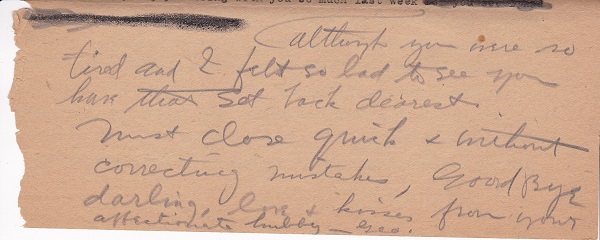 with you so much last week
(although you were so
tired and I felt so bad to see you
have that set back dearest
Must close quick & without
correcting mistakes, Good Bye
darling, love & kisses from your
affectionate hubby — Geo.